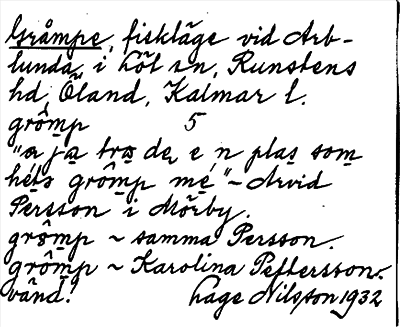 Gråmpe, fiskläge vid Arb-
lunda i Löt sn, Runstens
hd, Öland, Kalmar l.
grômp 5
"a ja tra de e n plas som
hets grômp me" ~ Arvid
Persson i Mörby.
grômp ~ samma Persson.
grômp ~ Karolina Pettersson.
vänd! Hage Nilsson 1932